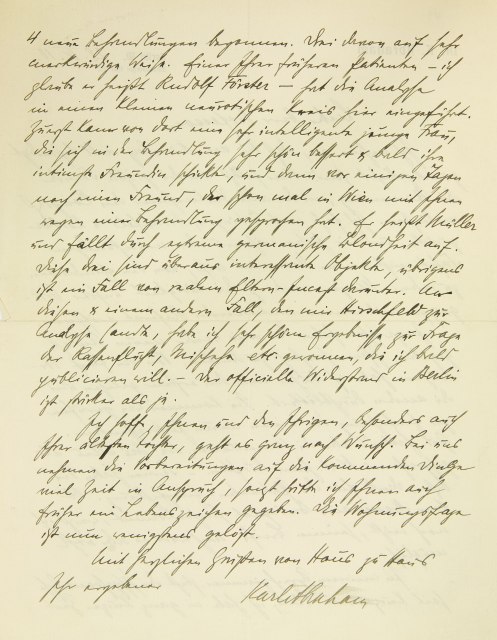 4 neue Behandlungen begonnen. Drei davon auf sehr
merkwürdige Weise. Einer Ihrer früheren Patienten – ich
glaube er heißt Rudolf Förster – hat die Analyse
in einen kleinen neurotischen Kreis hier eingeführt.
Zuerst kam von dort eine sehr intelligente junge Frau,
die sich in der Behandlung sehr schön bessert & bald ihre
intimste Freundin schickte, und dann vor einigen Tagen
noch einen Freund, der schon mal in Wien mit Ihnen
wegen einer Behandlung gesprochen hat. Er heißt Müller
und fällt durch extreme germanische Blondheit auf.
Diese drei sind überaus interessante Objekte, übrigens
ist ein Fall von realem Eltern-Incest darunter. An
diesen & einem andern Fall, den mir Hirschfeld zur
Analyse sandte, habe ich sehr schöne Ergebnisse zur Frage
der Rassenflucht, Mischehe etc. gewonnen, die ich bald
publicieren will. – Der officielle Widerstand in Berlin
ist stärker als je.
Ich hoffe, Ihnen und den Ihrigen, besonders auch
Ihrer ältesten Tochter, geht es ganz nach Wunsch. Bei uns
nehmen die Vorbereitungen auf die kommenden Dinge
viel Zeit in Anspruch, sonst hätte ich Ihnen auch
früher ein Lebenszeichen gegeben. Die Wohnungsfrage
ist nun wenigstens gelöst.
Mit herzlichen Grüßen von Haus zu Haus
Ihr ergebener Karl Abraham